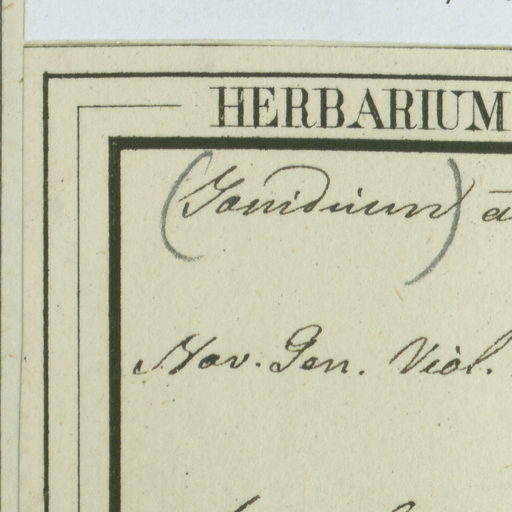 HERBARIUM
(Ionidium)
Nov. Gen. Viol.